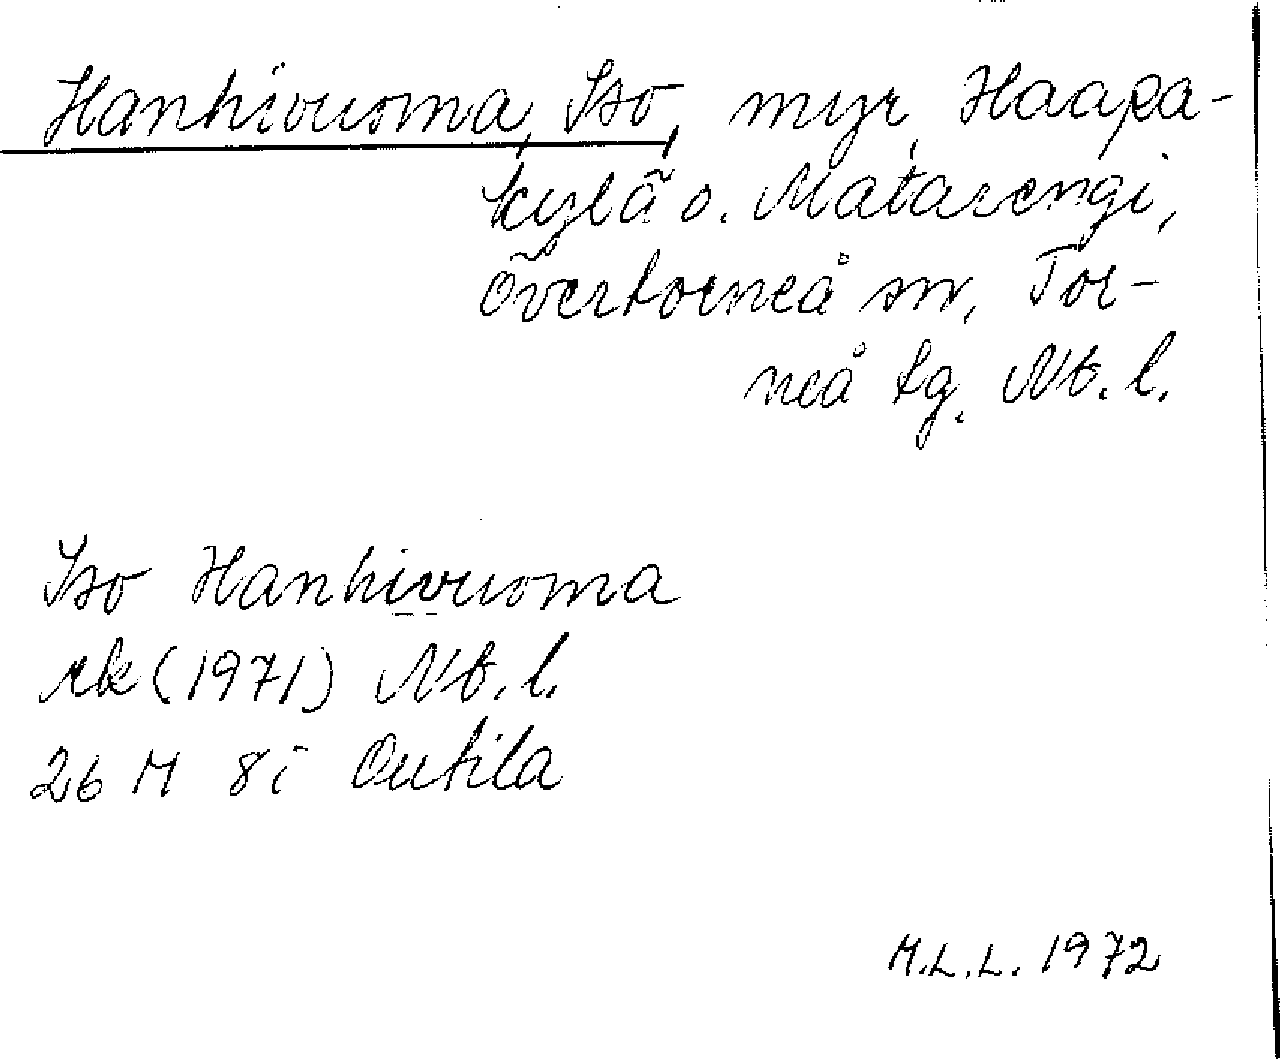 Hanhivuoma, Iso, myr, Haapa-
kylä o. Matarengi,
Övertorneå sn, Tor-
neå tg. Nb. l.
Iso Hanhivuoma
rk (1971) Nb. l.
26 M 8i Outila
M.L.L. 1972